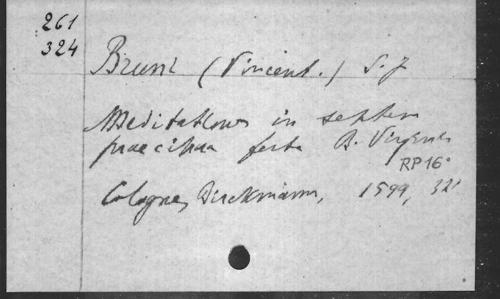 261
324
Bruni (Vincent.) S. J
Meditationes in septem
praecipua festa B. Virginis
RP16°
Cologne, Birckmann, 1599, 32°